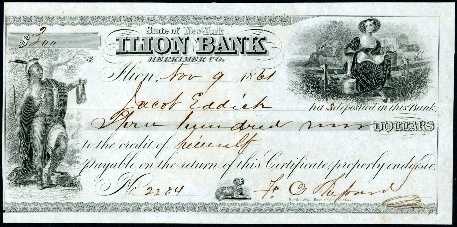 State of New-York
$300
ILION BANK
HERKIMER CO.
Ilion, Nov 9 1861
Jacob Eddick
has deposited in this Bank
Three hundred DOLLARS
to the credit of himself
payable on the return of this Certificate, properly endorsed.
No. 2284